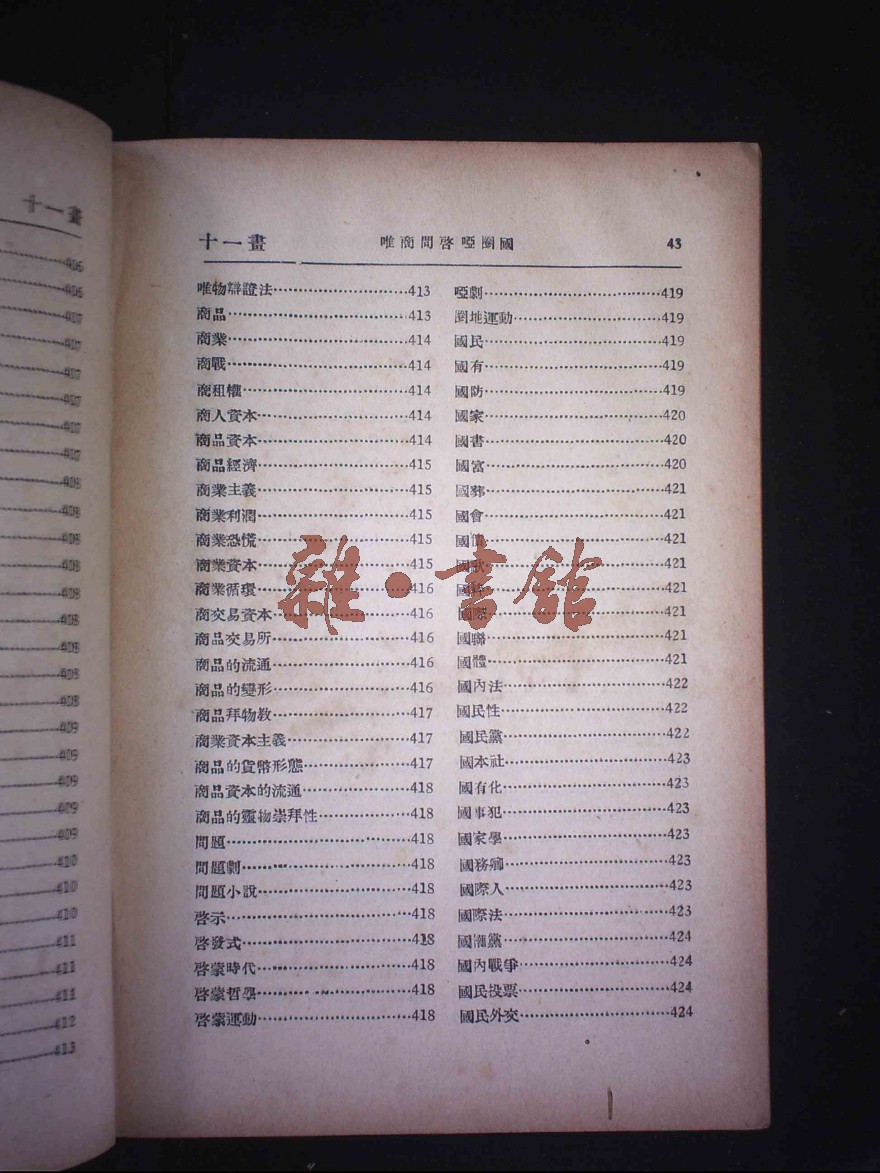 十一畫
406
406
407
407
407
407
407
407
408
408
408
408
408
408
408
408
408
409
409
409
409
409
410
410
410
411
411
411
412
413
十一畫 唯商問啓啞圈國 43
唯物辯證法 413
商品 413
商業 414
商戰 414
商租權 414
商人資本 414
商品資本 414
商品經濟 415
商業主義 415
商業利潤 415
商業恐慌 415
商業資本 415
商業循環 416
商交易資本 416
商品交易所 416
商品的流通 416
商品的變形 416
商品拜物教 417
商業資本主義 417
商品的貨幣形態 417
商品資本的流通 418
商品的靈物崇拜性 418
問題 418
問題劇 418
問題小說 418
啓示 418
啓發式 418
啓蒙時代 418
啓蒙哲學 418
啓蒙運動 418
啞劇 419
圈地運動 419
國民 419
國有 419
國防 419
國家 420
國書 420
國富 420
國葬 421
國會 421
國債 421
國歌 421
421
國際 421
國聯 421
國體 421
國內法 422
國民性 422
國民黨 422
國本社 423
國有化 423
國事犯 423
國家學 423
國務卿 423
國際人 423
國際法 423
國權黨 424
國內戰爭 424
國民投票 424
國民外交 424
雜·書館